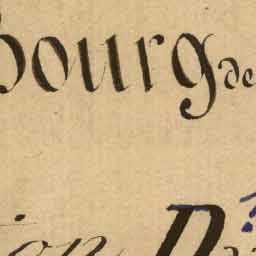 bourg de
ion D